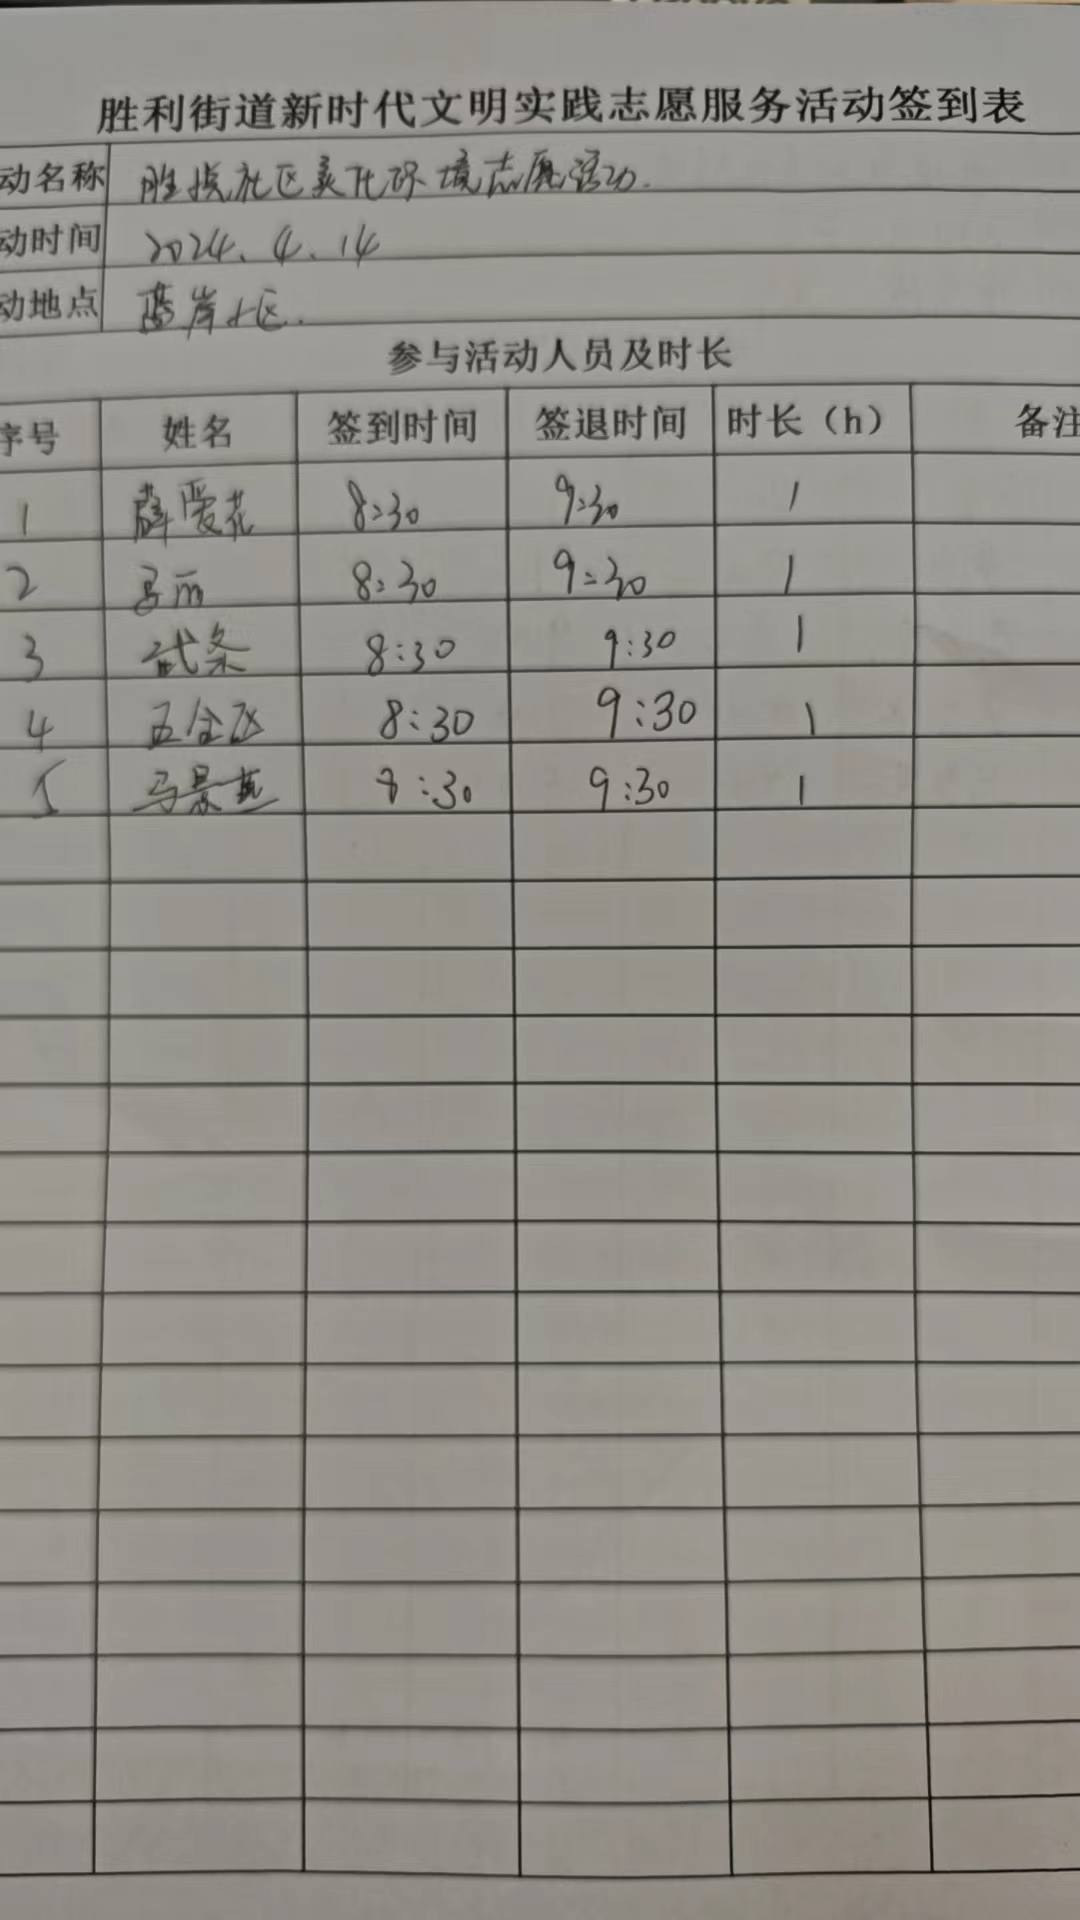 胜利街道新时代文明实践志愿服务活动签到表
动名称 胜采社区美化环境志愿活动.
动时间 2024.4.14
动地点 蓝岸小区.
参与活动人员及时长
序号 姓名 签到时间 签退时间 时长（h） 备注
1 薛爱花 8:30 9:30 1
2 马丽 8:30 9:30 1
3 8:30 9:30 1
4 8:30 9:30 1
5 马景燕 8:30 9:30 1